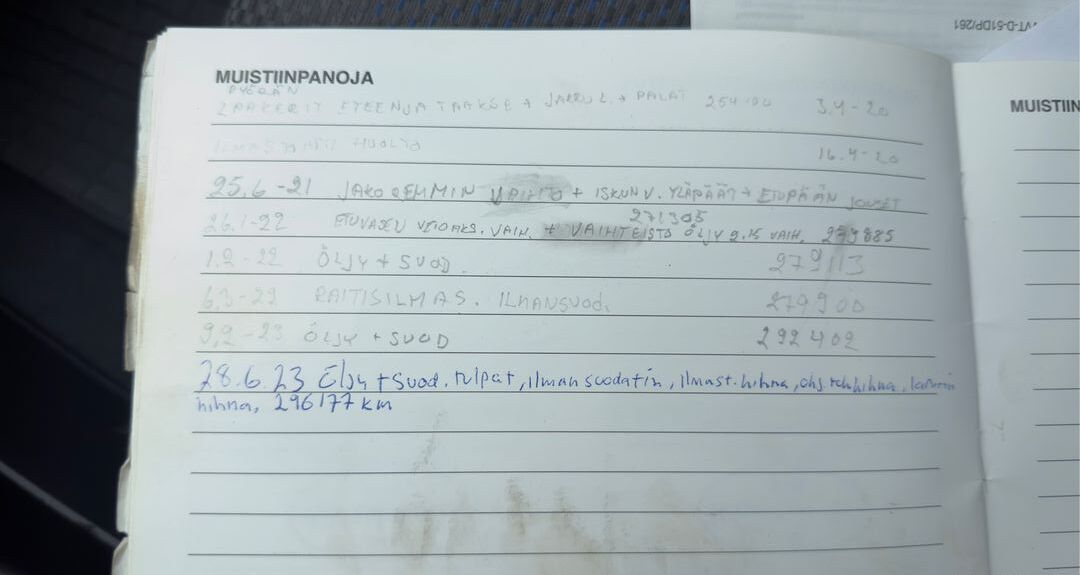 VT-D-51DP/261
MUISTIINPANOJA
PYÖRÄN
LAAKERIT ETEEN JA TAAKSE + JARRU L. + PALAT 254100 3.4-20
HUOLTO 16.4-20
25.6-21 JAKO VAIHTO + ISKUNV. YLÄPÄÄT + ETUPÄÄN JOUSET
271305
26.1-22 ETUVASEN VETOAKS. VAIH. + VAIHTEISTO ÖLJY 2.15 VAIH. 273885
1.2-22 ÖLJY + SUOD. 279113
6.3-22 RAITISILMAS. ILMANSUOD. 279900
9.2-23 ÖLJY + SUOD 292402
28.6.23 Öljy + suod. tulpat, ilman suodatin, ilmast. hihna, ohj teh hihna, laturin
hihna, 296177 km
MUISTIIN